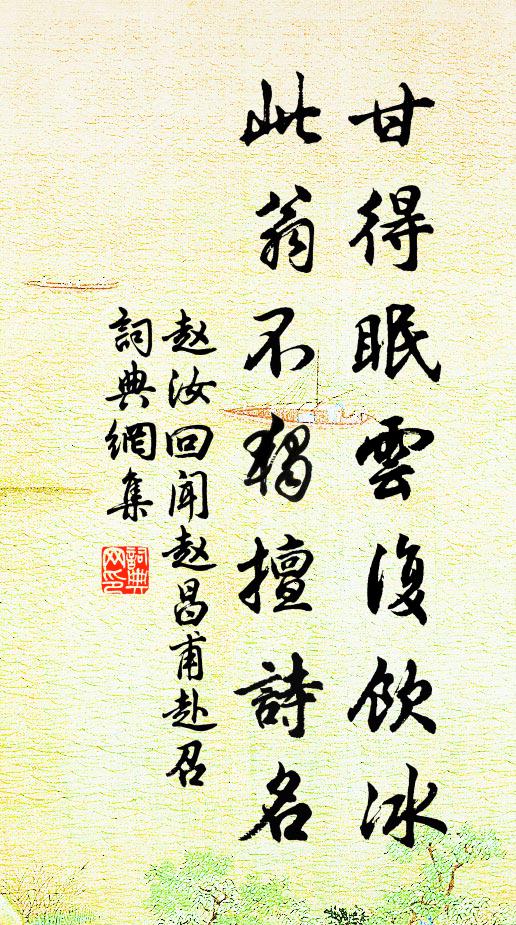 甘得眠雲復飲冰
此翁不獨擅詩名
赵汝回闻赵昌甫赴召
詞典網集
詞典网印